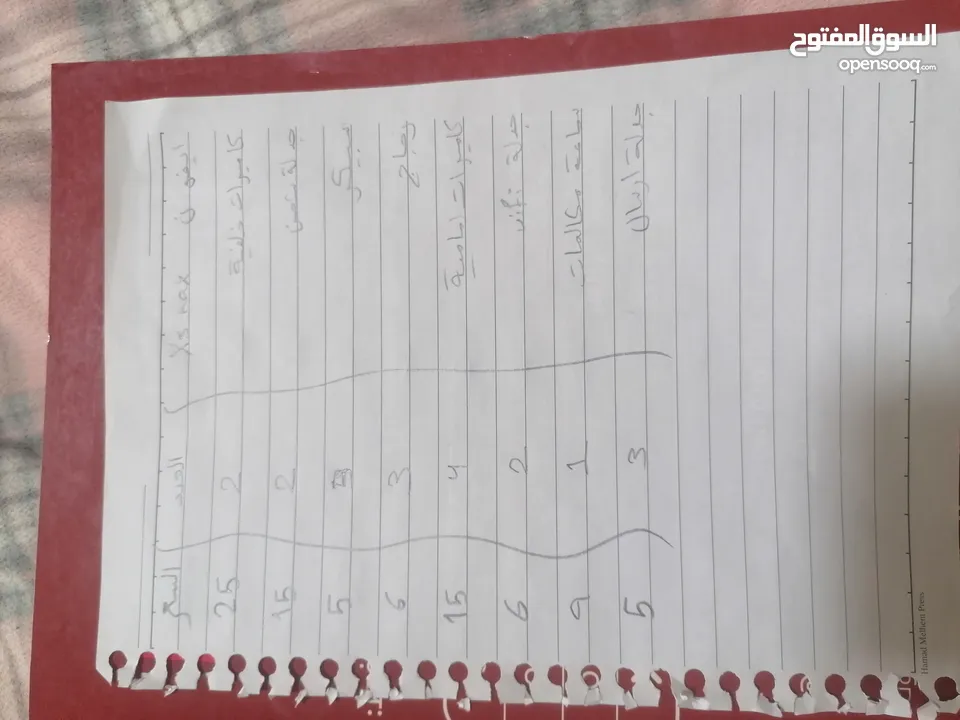 السوق المفتوح
opensooq.com
ايفون Xs max العدد السعر
كاميرات خلفية 2 25
جدلة شحن 2 15
سبيكر 5
زجاج 3 6
كاميرات امامية 4 15
جدلة wifi 2 6
سماعة مكالمات 1 9
جدلة ارسال 3 5
Hamad Melhem Press